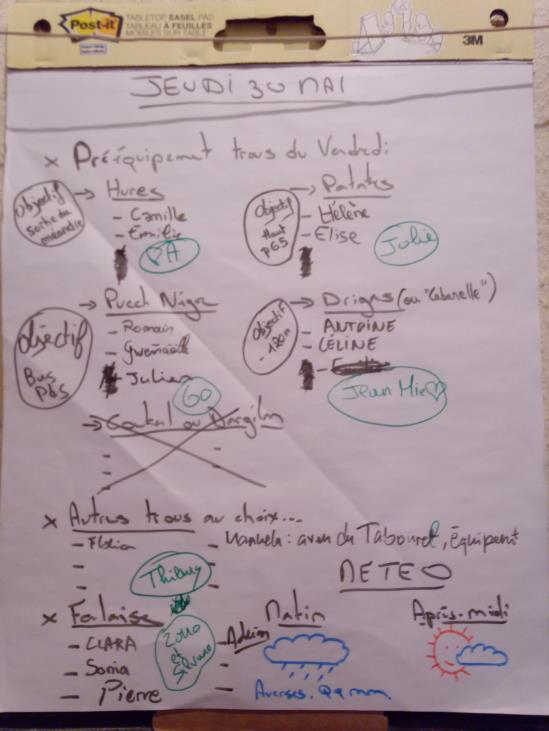 Post-it
TABLETOP EASEL PAD
TABLEAU À FEUILLES
MOBILES SUR TABLE
3M
JEUDI 30 MAI
x Prééquipement trous du Vendredi
Objectif
sortie du
méandre
→ Hures
- Camille
- Emilie
PA
Objectif
Haut
P65
→ Patates
- Hélène
- Elise
Jolie
Objectif
Bas
→ Puech Nègre
- Romain
- Gwenaëlle
- Julien
GO
Objectif
- 120m
→ Drigas (ou "Cabanelle")
- ANTOINE
- CÉLINE
Jean Mie
→ Goutal ou Dargilan
x Autres trous au choix...
- Manuela : aven du Tabouret, équipent
x Falaise
- CLARA
- Sonia
- Pierre
- Adrien
et
METEO
Matin
Averses. Qq mm
Après-midi